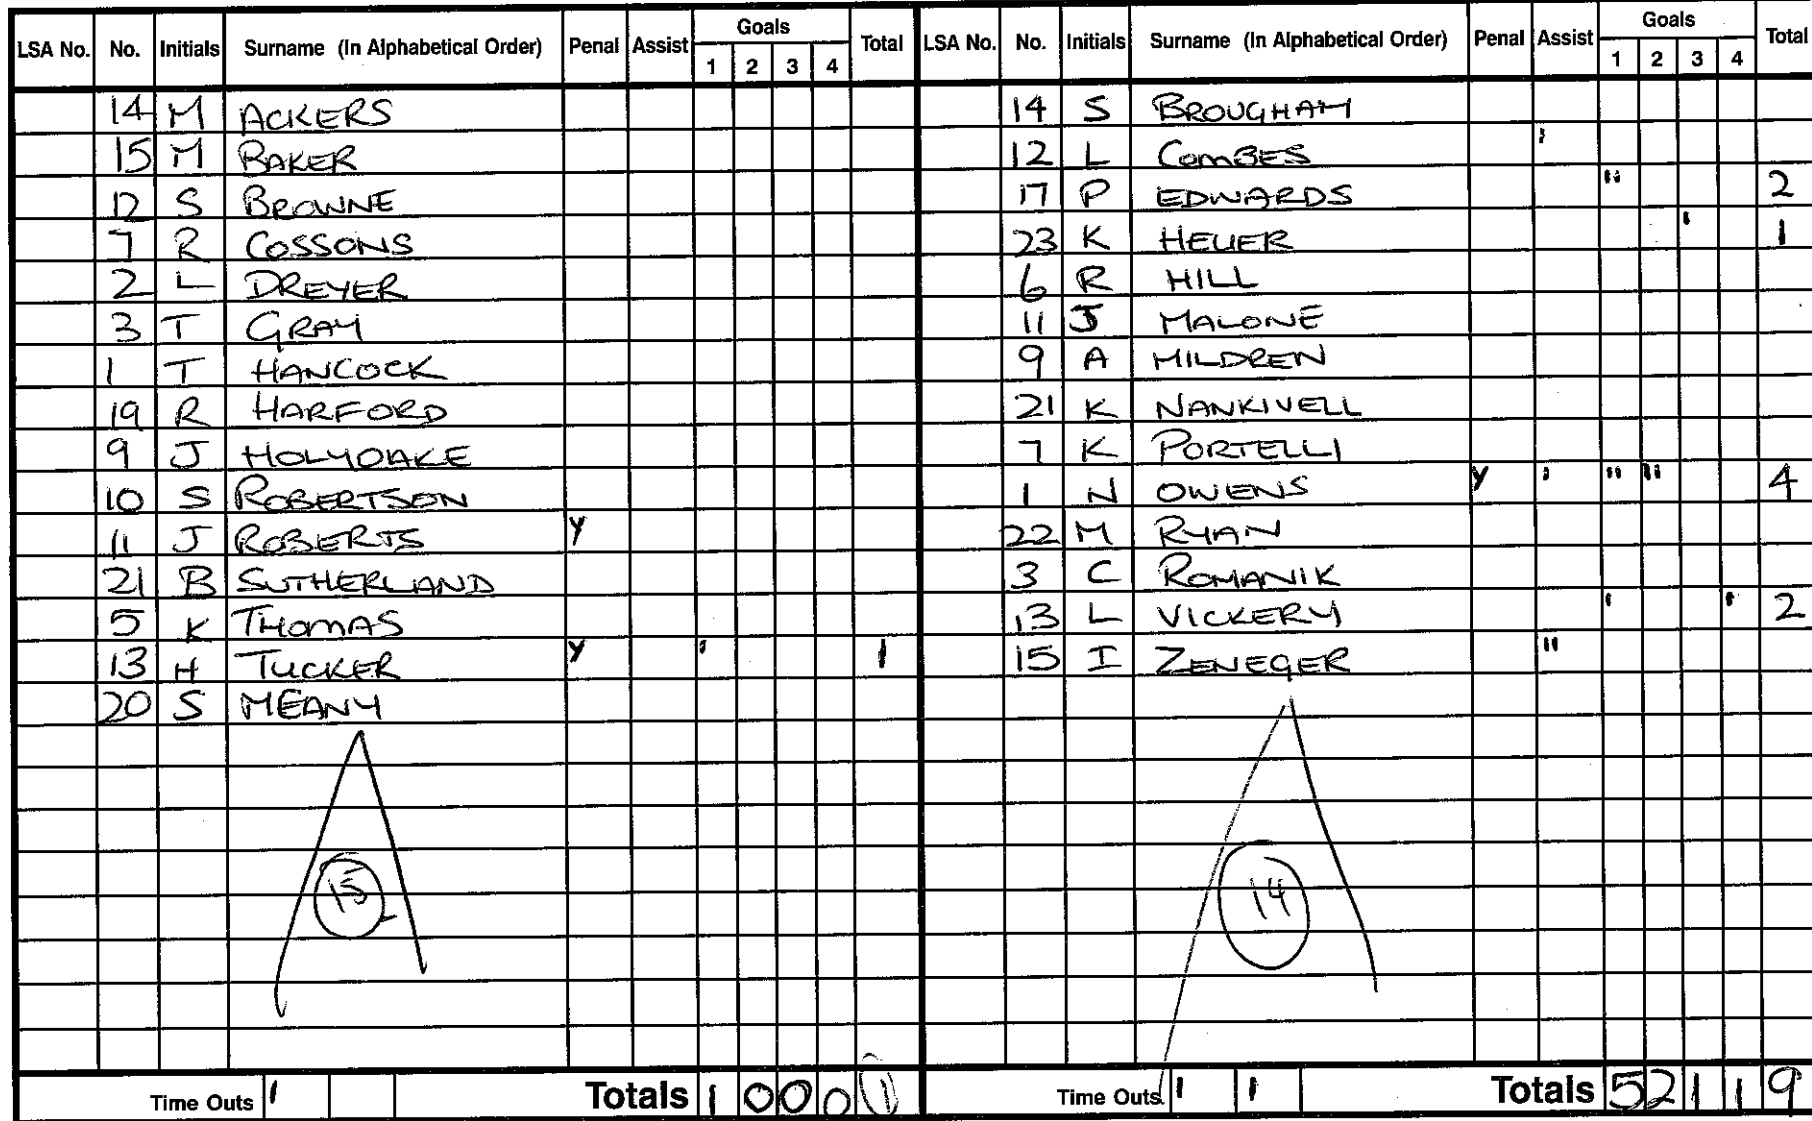 LSA No. No. Initials Surname (In Alphabetical Order) Penal Assist Goals 1 2 3 4 Total
14 M ACKERS
15 M BAKER
12 S BROWNE
7 R COSSONS
2 L DREYER
3 T GRAY
1 T HANCOCK
19 R HARFORD
9 J HOLYOAKE
10 S ROBERTSON
11 J ROBERTS Y
21 B SUTHERLAND
5 K THOMAS
13 H TUCKER Y ' 1
20 S MEANY
15
Time Outs 1 Totals 1 0 0 0 1
LSA No. No. Initials Surname (In Alphabetical Order) Penal Assist Goals 1 2 3 4 Total
14 S BROUGHAM
12 L COMBES '
17 P EDWARDS " 2
23 K HEUER ' 1
6 R HILL
11 J MALONE
9 A MILDREN
21 K NANKIVELL
7 K PORTELLI
1 N OWENS Y ' " " 4
22 M RYAN
3 C ROMANIK
13 L VICKERY ' ' 2
15 I ZENEGER "
14
Time Outs 1 1 Totals 5 2 1 1 9